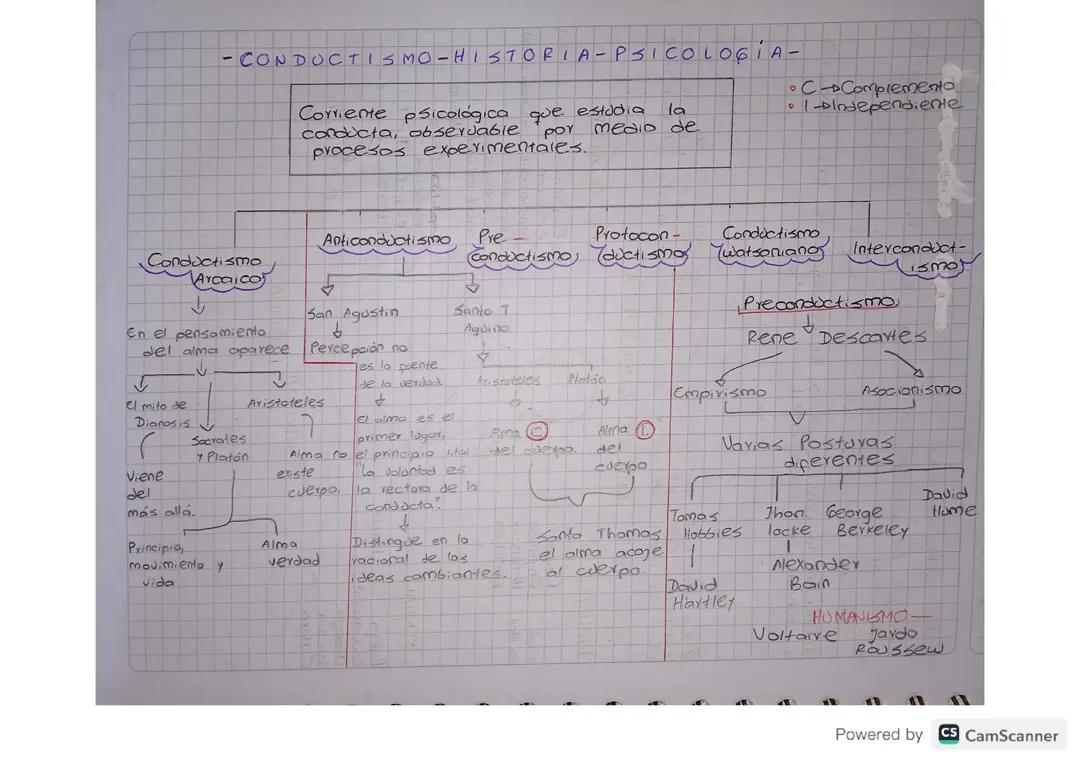 -CONDUCTISMO-HISTORIA-PSICOLOGÍA-
• C →Complemento
• I →Independiente
Corriente psicológica que estudia la
conducta, observable por medio de
procesos experimentales.
Conductismo
Arcaico
Anticonductismo
Pre-
conductismo
Protocon-
ductismo
Conductismo
Watsoniano
Interconduct-
ismo
En el pensamiento
del alma aparece
El mito de
Dianosis
Viene
del
más allá.
Socrates
y Platón
Principio,
movimiento y
vida
Alma
verdad
Aristoteles
Alma no
existe
cuerpo.
San Agustin
Percepción no
es la fuente
de la verdad
El alma es el
primer lugar,
el principio vital
"la voluntad es
la rectora de la
conducta".
Distingue en lo
racional de las
ideas cambiantes.
Santo T
Aquino
Aristoteles
Platón
Alma C
del cuerpo.
Alma I
del
cuerpo
Santo Thomas
el alma acoje
al cuerpo
Preconductismo
Rene Descartes
Empirismo
Asocionismo
Varias Posturas
diferentes
Tomas
Hobbies
David
Hartley
Jhon
locke
Alexander
Bain
George
Berkeley
David
Hume
HUMANISMO—
Voltaire
Javdo
Roussew
Powered by CS CamScanner